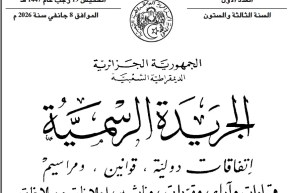 العدد الأول
الخميس 19 رجب عام 1447 هـ
السنة الثالثة والستون
الموافق 8 جانفي سنة 2026 م
الجمهورية الجزائرية
الديمقراطية الشعبية
الجريدة الرسمية
اتفاقات دولية ، قوانين ، ومراسيم